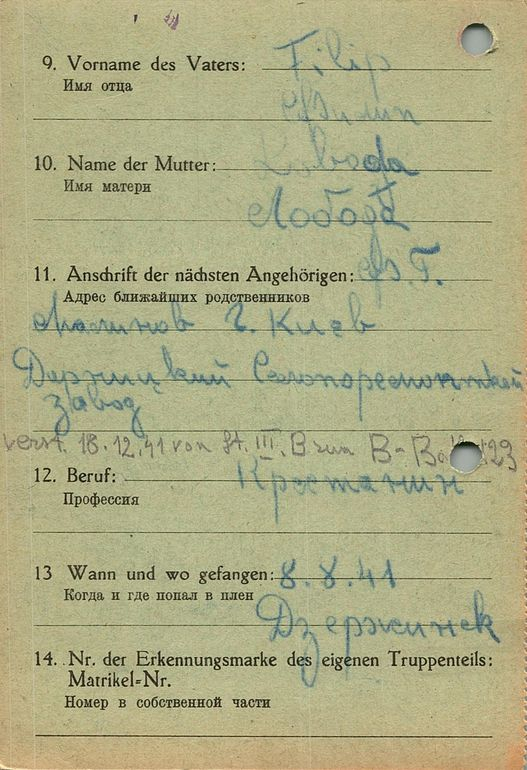 9. Vorname des Vaters: Filip
Имя отца
Филип
10. Name der Mutter: Loboda
Имя матери
Лобода
11. Anschrift der nächsten Angehörigen:
Адрес ближайших родственников
г. Киев
Дарницкий
завод
18.12.41 von St. III. B zum
12. Beruf: Крестанин
Профессия
13 Wann und wo gefangen: 8.8.41
Когда и где попал в плен
Дзержинск
14. Nr. der Erkennungsmarke des eigenen Truppenteils:
Matrikel=Nr.
Номер в собственной части